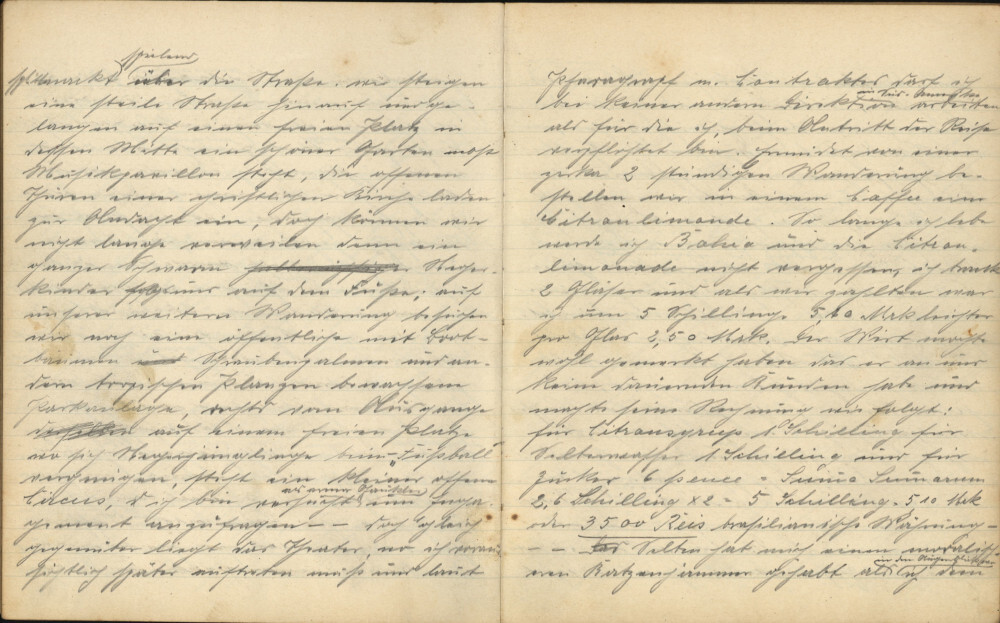 spielend
splitternackt über die Straße. wir steigen
eine steile Straße hinauf und ge-
langen auf einen freien Platz in
dessen Mitte ein schöner Garten nebst
Musikpavillon steht, die offenen
Thüren einer christlichen Kirche laden
zur Andacht ein, doch können wir
nicht lange verweilen denn ein
ganzer Schwarm Neger-
kinder folgt uns auf dem Fuße; auf
unserer weitern Wanderung besuchen
wir noch eine öffentliche mit Brot-
bäumen und Schraubenpalmen und an-
dern tropischen Planzen bewachsene
Parkanlage, rechts vom Ausgange
derselben auf einem freien Platze
wo sich Negerjünglinge beim „Fußball
vergnügen, steht ein kleiner offener
als armer Gaukler
Circus, & ich bin versucht um Enga-
gement anzufragen — — doch gleich
gegenüber liegt das Theater, wo ich voraus
sichtlich später auftreten muß und laut
Pharagrapf m. Contraktes darf ich
bei keiner andern Direktion arbeiten
als für die ich, beim Antritt der Reise
verpflichtet bin. Ermüdet von einer
zirka 2 stündigen Wanderung be-
stellen wir in einem Caffee eine
Citronlimonade. So lange ich leb
werde ich Bahia und die Citron-
limonade nicht vergessen, ich trank
2 Gläser und als wir zahlten war
ich um 5 Schilling = 5,10 Mrk leichter
pro Glas 2,50 Mrk. Der Wirt mochte
wohl gemerkt haben das er an uns
keine dauernden Kunden habe und
machte seine Rechnung wie folgt:
für Citronsyrup 1 Schilling für
Selterwasser 1 Schilling und für
Zucker 6 pence = Suma Sumarum
2,6 Schilling x 2 = 5 Schilling = 5 10 Mrk
oder 35 00 Reis brasilianische Währung —
— — Selten hat mich einen moralisch
in den Augenblicken
eren Katzenjammer gehabt als ich dem